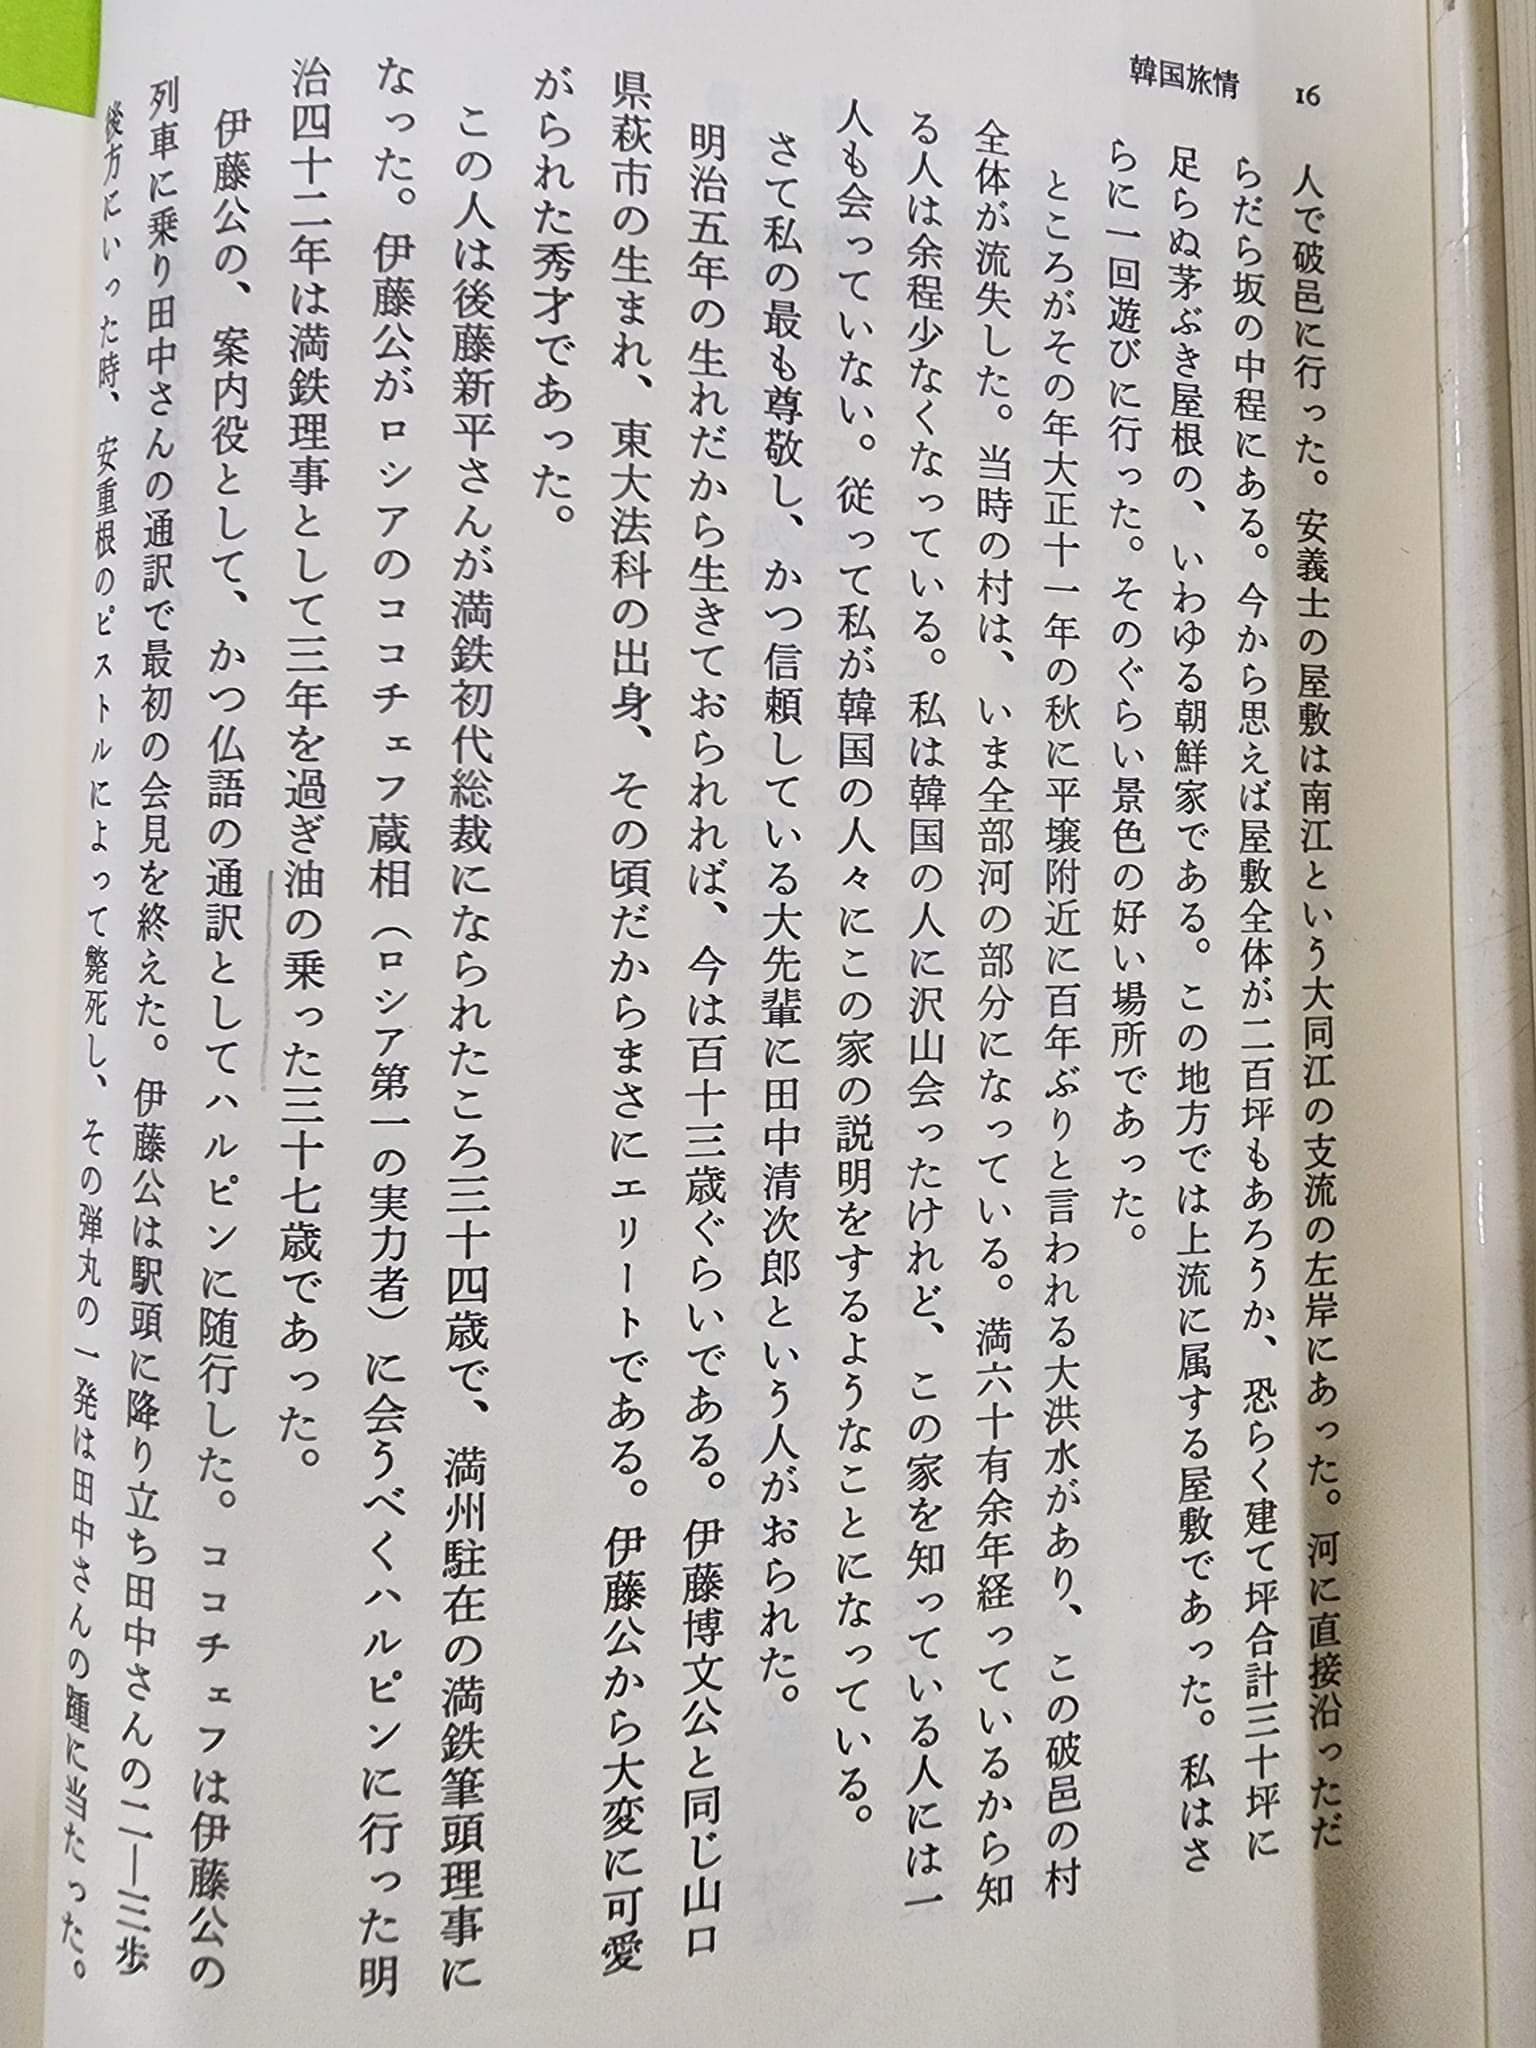 16
韓国旅情
人で破邑に行った。安義士の屋敷は南江という大同江の支流の左岸にあった。河に直接沿っただ
らだら坂の中程にある。今から思えば屋敷全体が二百坪もあろうか、恐らく建て坪合計三十坪に
足らぬ茅ぶき屋根の、いわゆる朝鮮家である。この地方では上流に属する屋敷であった。私はさ
らに一回遊びに行った。そのぐらい景色の好い場所であった。
ところがその年大正十一年の秋に平壌附近に百年ぶりと言われる大洪水があり、この破邑の村
全体が流失した。当時の村は、いま全部河の部分になっている。満六十有余年経っているから知
る人は余程少なくなっている。私は韓国の人に沢山会ったけれど、この家を知っている人には一
人も会っていない。従って私が韓国の人々にこの家の説明をするようなことになっている。
さて私の最も尊敬し、かつ信頼している大先輩に田中清次郎という人がおられた。
明治五年の生れだから生きておられれば、今は百十三歳ぐらいである。伊藤博文公と同じ山口
県萩市の生まれ、東大法科の出身、その頃だからまさにエリートである。伊藤公から大変に可愛
がられた秀才であった。
この人は後藤新平さんが満鉄初代総裁になられたころ三十四歳で、満州駐在の満鉄筆頭理事に
なった。伊藤公がロシアのココチェフ蔵相（ロシア第一の実力者）に会うべくハルピンに行った明
治四十二年は満鉄理事として三年を過ぎ油の乗った三十七歳であった。
伊藤公の、案内役として、かつ仏語の通訳としてハルピンに随行した。ココチェフは伊藤公の
列車に乗り田中さんの通訳で最初の会見を終えた。伊藤公は駅頭に降り立ち田中さんの二―三歩
後方にいった時、安重根のピストルによって斃死し、その弾丸の一発は田中さんの踵に当たった。